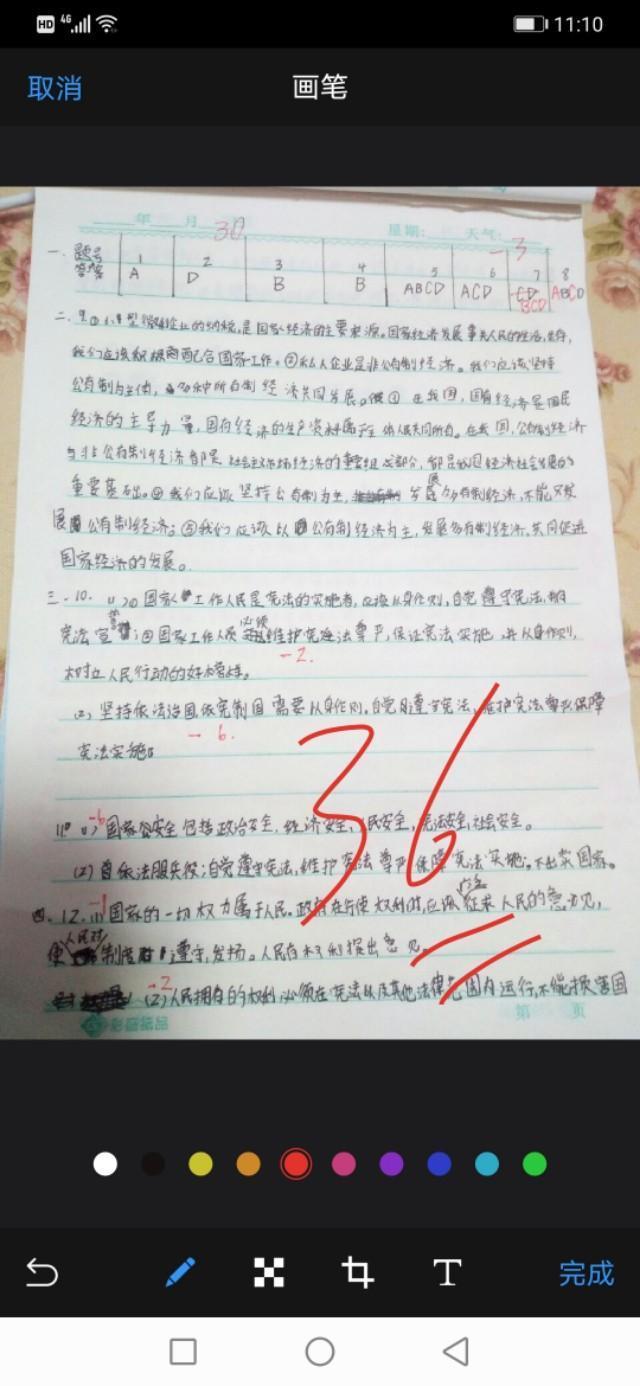 HD 4G 11:10
取消 画笔
年 月 30 星期: 天气: -3
一. 题号 1 2 3 4 5 6 7 8
答案 A D B B ABCD ACD CD ABCD
BCD
二. 型微企业的纳税,是国家经济的主要来源。国家经济发展事关人民的生活,
我们应该积极配合国家工作。②私人企业是非公有制经济。我们应该坚持
公有制为主体,多种所有制经济共同发展。① 在我国,国有经济是国民
经济的主导力量,国有经济的生产资料属于全体人民共同所有。在我国,公有制经济
与非公有制经济都是社会主义市场经济的重要组成部分,都是我国经济社会发展的
重要基础。② 我们应该坚持公有制为主,发展多有制经济,不能只发
展公有制经济;③我们应该以公有制经济为主,发展多有制经济,共同促进
国家经济的发展。
三.10. (1) ①国家工作人民是宪法的实施者,应该从身作则,自觉遵守宪法,
宪法宣誓;②国家工作人员必须维护宪法尊严,保证宪法实施,并从身作则,
-2.
树立人民行动的好榜样。
(2) 坚持依法治国依宪制国需要从身作则,自觉遵守宪法,维护宪法尊严,保障
宪法实施。 -6.
36
11. (1) -6 国家安全包括政治安全,经济安全,人民安全,宪法安全,社会安全。
(2) 依法服兵役;自觉遵守宪法,维护宪法尊严,保障宪法实施;不出卖国家。
四.12. -1 国家的一切权力属于人民。政府在行使权利时,应该征求人民的意见,
制度 遵守,发扬。人民有权利提出意见。
-2 (2)人民拥有的权利必须在宪法以及其他法律范围内运行,不能损害国
第 页
T 完成